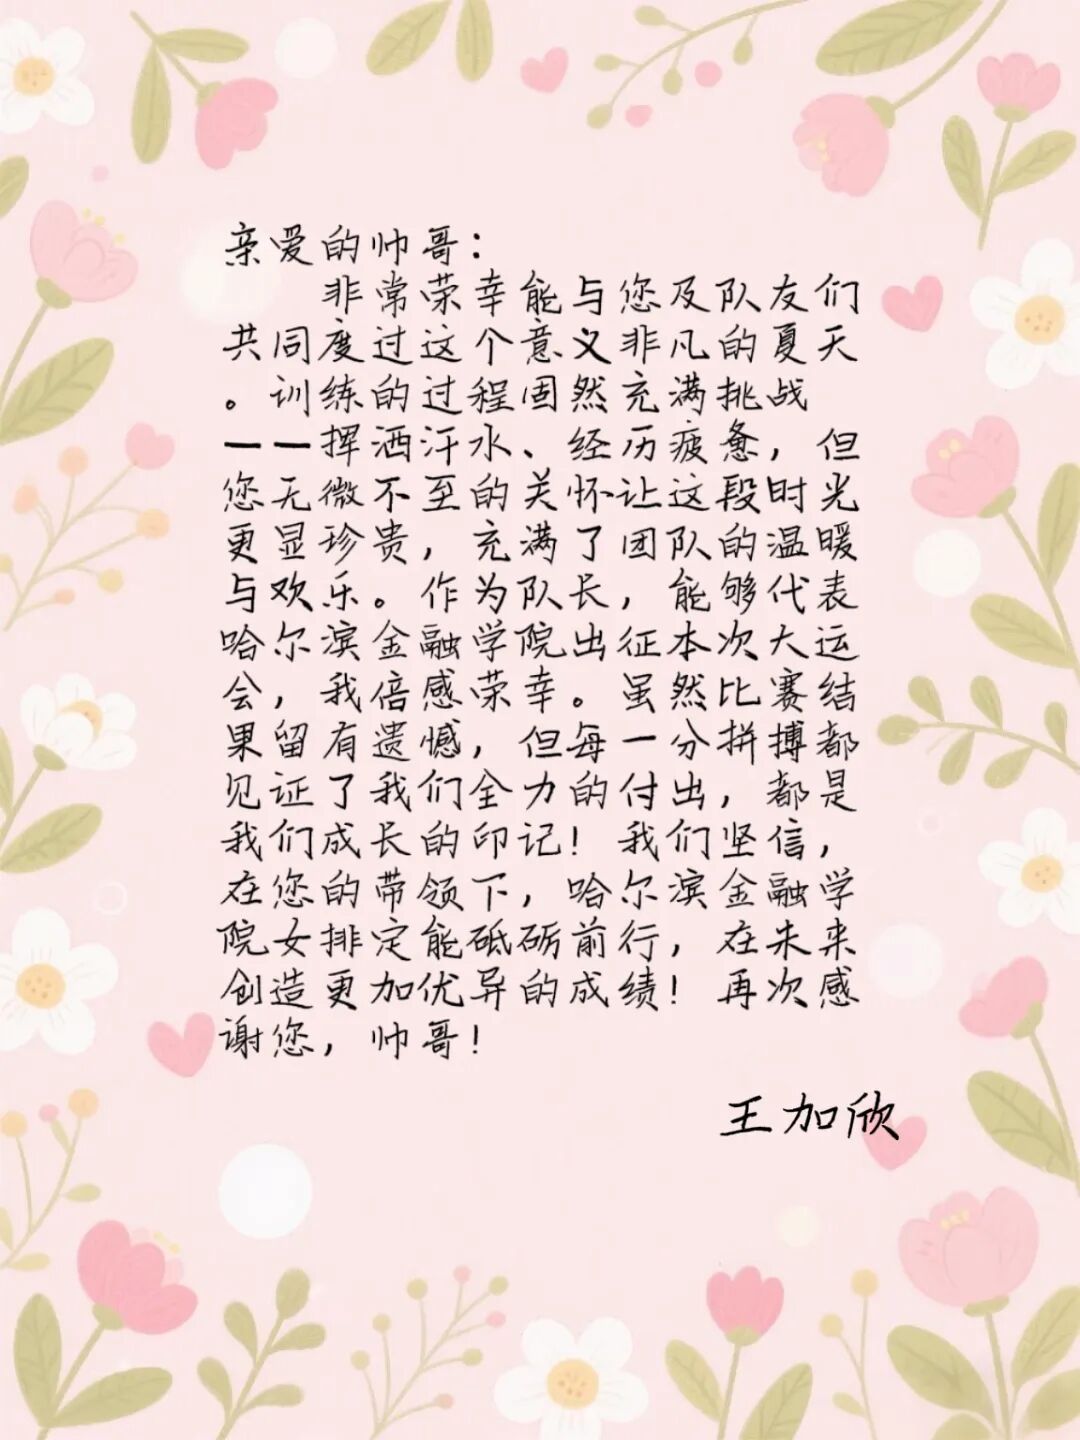 亲爱的帅哥：
非常荣幸能与您及队友们
共同度过这个意义非凡的夏天
。训练的过程固然充满挑战
——挥洒汗水、经历疲惫，但
您无微不至的关怀让这段时光
更显珍贵，充满了团队的温暖
与欢乐。作为队长，能够代表
哈尔滨金融学院出征本次大运
会，我倍感荣幸。虽然比赛结
果留有遗憾，但每一分拼搏都
见证了我们全力的付出，都是
我们成长的印记！我们坚信，
在您的带领下，哈尔滨金融学
院女排定能砥砺前行，在未来
创造更加优异的成绩！再次感
谢您，帅哥！
王加欣